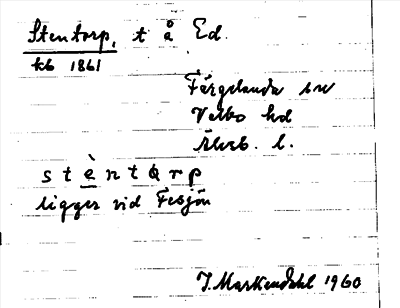 Stentorp, t å Ed.
kb 1861
Färgelanda sn
Valbo hd
Älvsb. l.
stè̱ntɑrp
ligger vid Fesjön
J. Markendahl 1960